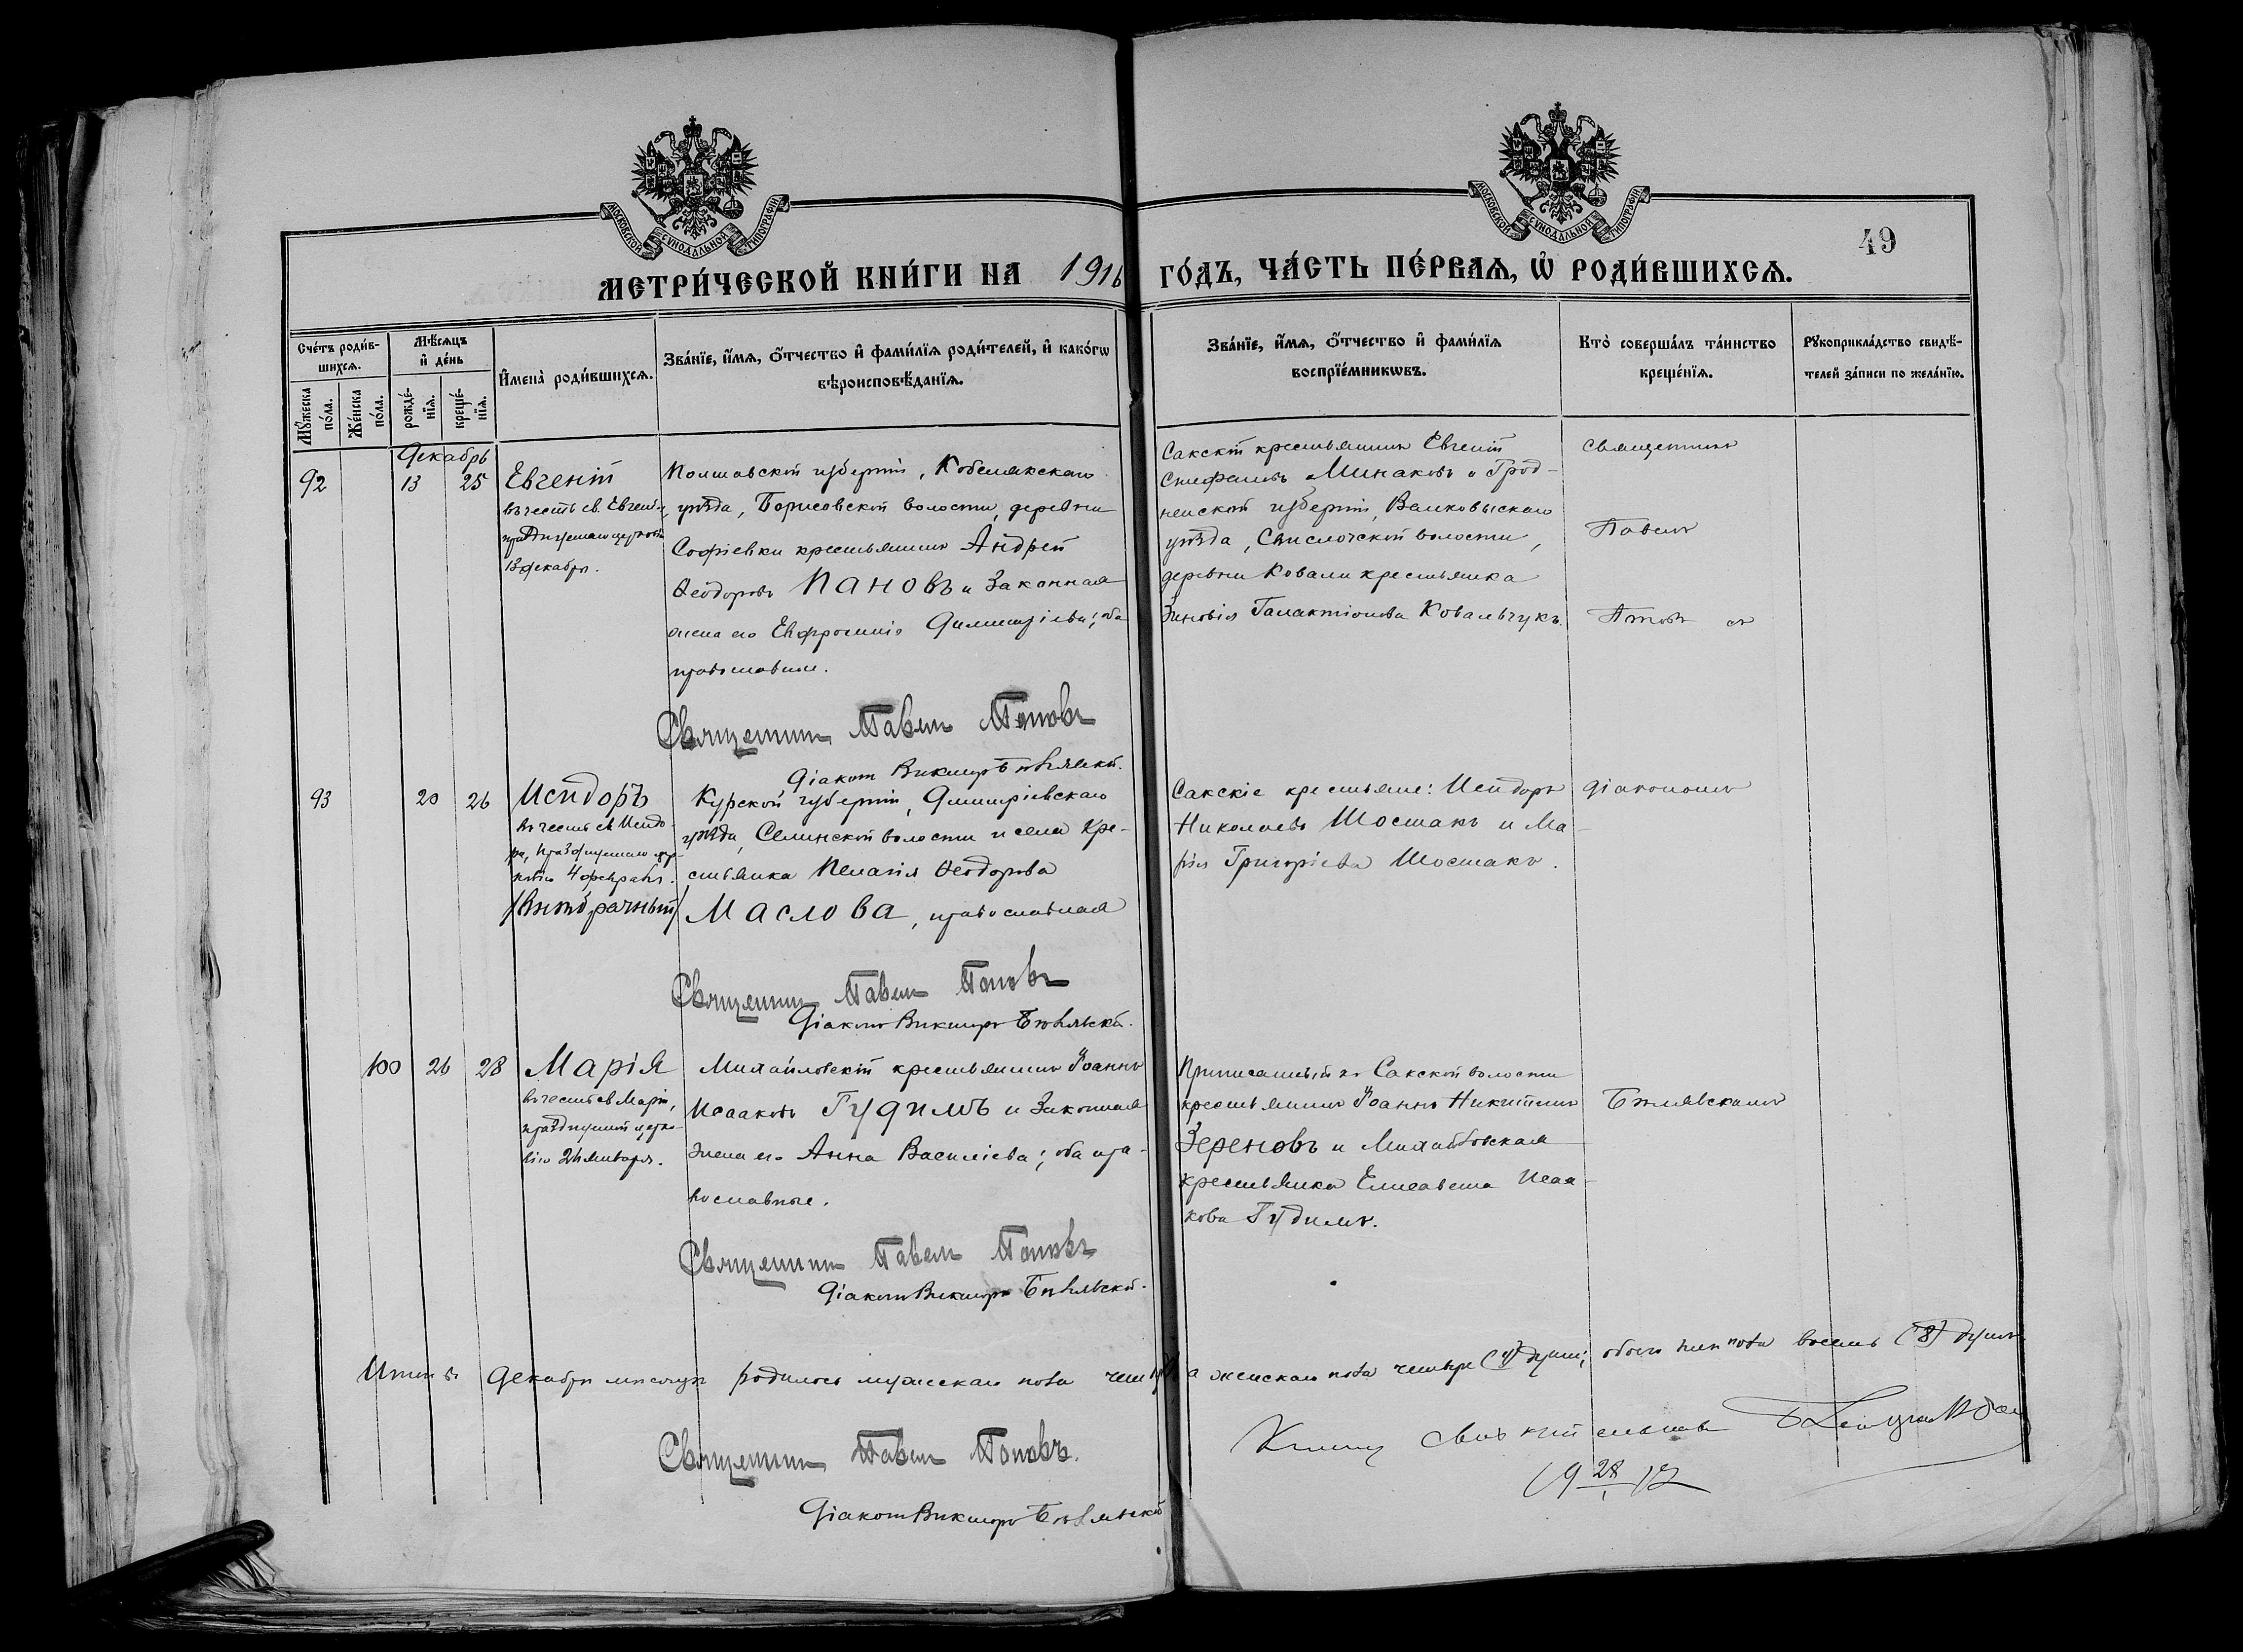 МОСКОВСКОЙ СѴНОДАЛЬНОЙ ТИПОГРАФІИ
МОСКОВСКОЙ СѴНОДАЛЬНОЙ ТИПОГРАФІИ
49
МЕТРИ́ЧЕСКОЙ КНИ́ГИ НА 1916 ГО́ДЪ, ЧА́СТЬ ПЕ́РВАѦ, Ѽ РОДИ́ВШИХСѦ.
Сче́тъ роди́в-
шихсѧ.
Мꙋ́жеска по́ла.
Же́нска по́ла.
Мѣ́сѧцъ и҆ де́нь
рожде́-нїѧ.
креще́-нїѧ.
И҆мена̀ роди́вшихсѧ.
Зва́нїе, и҆́мѧ, ѻ҆́тчество и҆ фами́лїѧ роди́телей, и҆ како́гѡ
вѣроисповѣ́данїѧ.
Зва́нїе, и҆́мѧ, ѻ҆́тчество и҆ фами́лїѧ
воспрїе́мникѡвъ.
Кто̀ соверша́лъ та́инство
креще́нїѧ.
Рꙋкоприкла́дство свидѣ́-
телей за́писи по жела́нїю.
Декабрь
92 13 25 Евгеній
въ честь св. Евгенія,
празднуемаго церковію
13 декабря.
Полтавской губерніи, Кобелякскаго
уѣзда, Борисовской волости, деревни
Софіевки крестьянинъ Андрей
Ѳеодоровъ Пановъ и законная
жена его Евфросинія Димитріева; оба
православные.
Священникъ Павелъ Поповъ
Діаконъ Викторъ Бѣлявскій.
Сакскій крестьянинъ Евгеній
Стефановъ Минаковъ и Грод-
ненской губерніи, Волковыскаго
уѣзда, Свислочской волости,
деревни Ковали крестьянка
Зиновія Галактіонова Ковальчукъ.
Священникъ
Павелъ
Поповъ съ
93 20 26 Исидоръ
въ честь св. Исидо-
ра, празднуемаго цер-
ковію 4 февраля.
/внѣбрачный/
Курской губерніи, Димитріевскаго
уѣзда, Селинской волости и села кре-
стьянка Пелагія Ѳеодорова
Маслова, православная
Священникъ Павелъ Поповъ
Діаконъ Викторъ Бѣлявскій.
Сакскіе крестьяне: Исидоръ
Николаевъ Шостакъ и Ма-
рія Григоріева Шостакъ.
діакономъ
100 26 28 Марія
въ честь св. Маріи,
празднуемой церко-
вію 26 января.
Михайловскій крестьянинъ Іоаннъ
Исааковъ Гудимъ и законная
жена его Анна Василіева; оба пра-
вославные.
Священникъ Павелъ Поповъ
Діаконъ Викторъ Бѣлявскій.
Приписанный къ Сакской волости
крестьянинъ Іоаннъ Никитинъ
Зереновъ и Михайловская
крестьянка Елисавета Исаа-
кова Гудимъ.
Бѣлявскимъ
Итого въ Декабрѣ мѣсяцѣ родилось мужескаго пола четыре, а женскаго пола четыре (4) души; обоего пола восемь (8) душъ.
Священникъ Павелъ Поповъ.
Діаконъ Викторъ Бѣлявскій
Книгу свидѣтельствовалъ
19 28/I 17